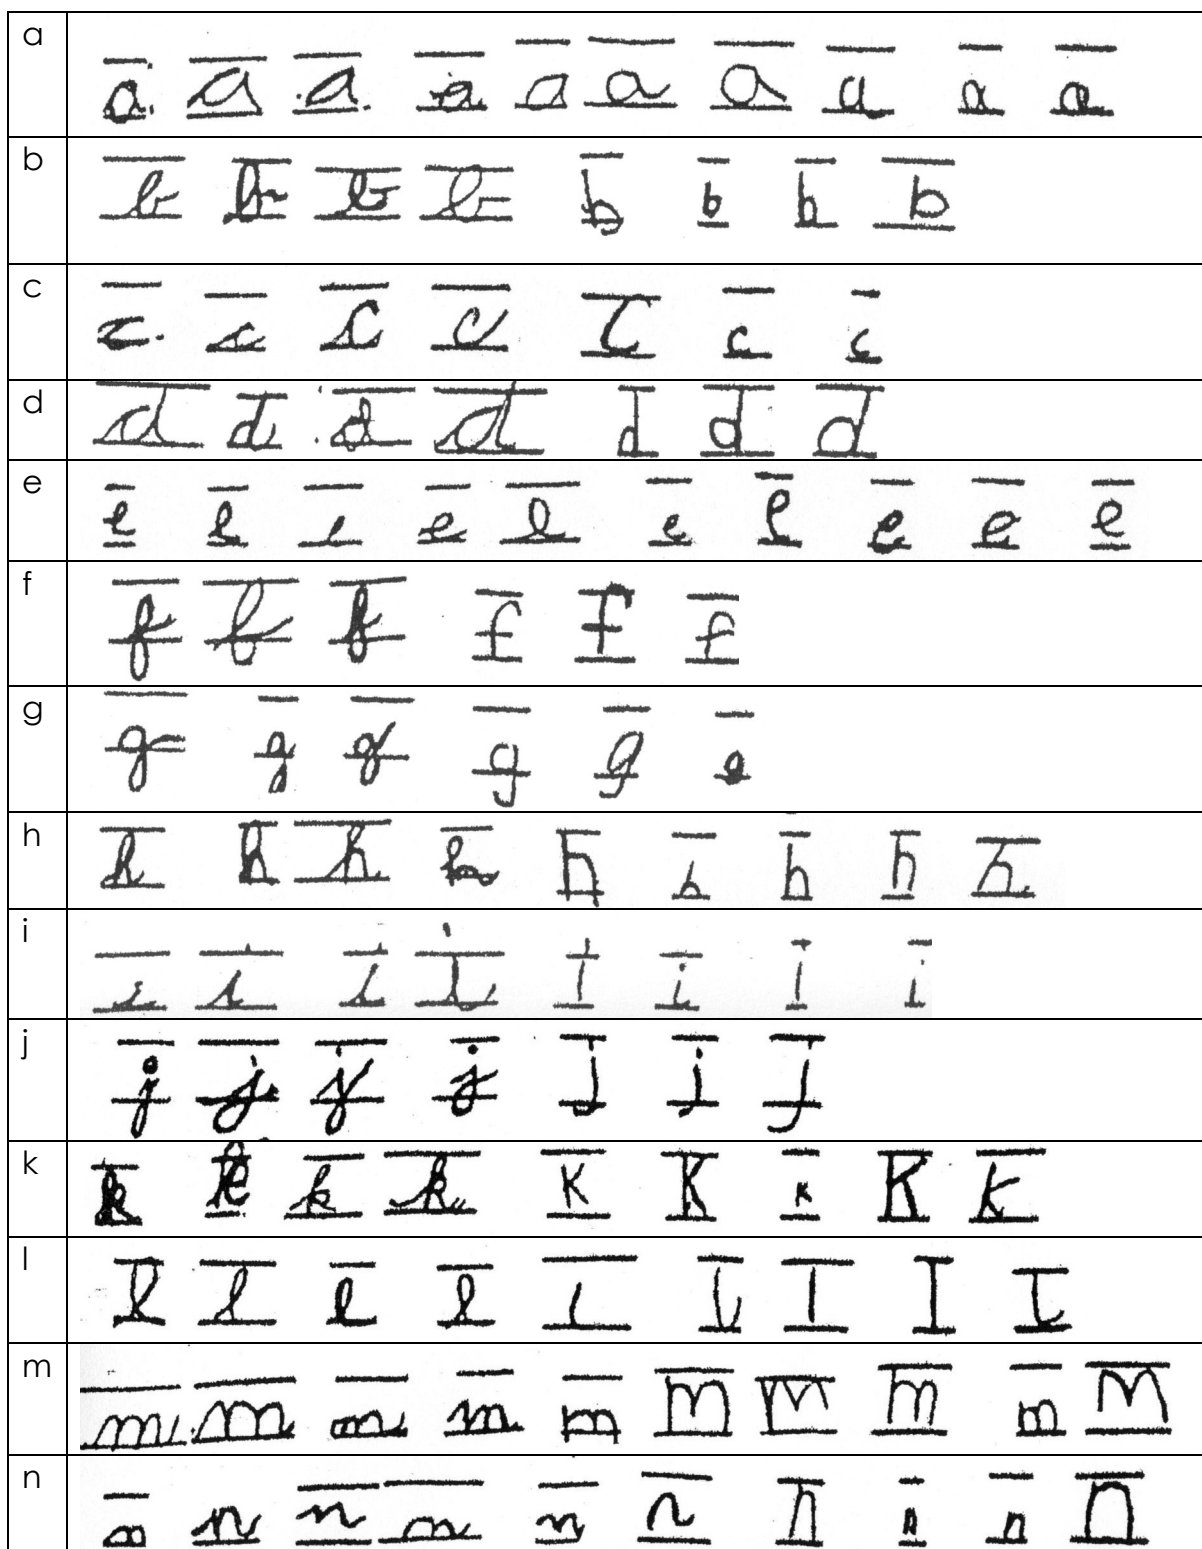 a a a a a a a a a a a
b b b b b b b b b
c c c c c c c c
d d d d d d d d
e e e e e e e e e e e
f f f f f f f
g g g g g g g
h h h h h h h h h h
i i i i i i i i i
j j j j j j j j
k k k k k k k k k k
l l l l l l l l l l
m m m m m m m m m m m
n n n n n n n n n n n